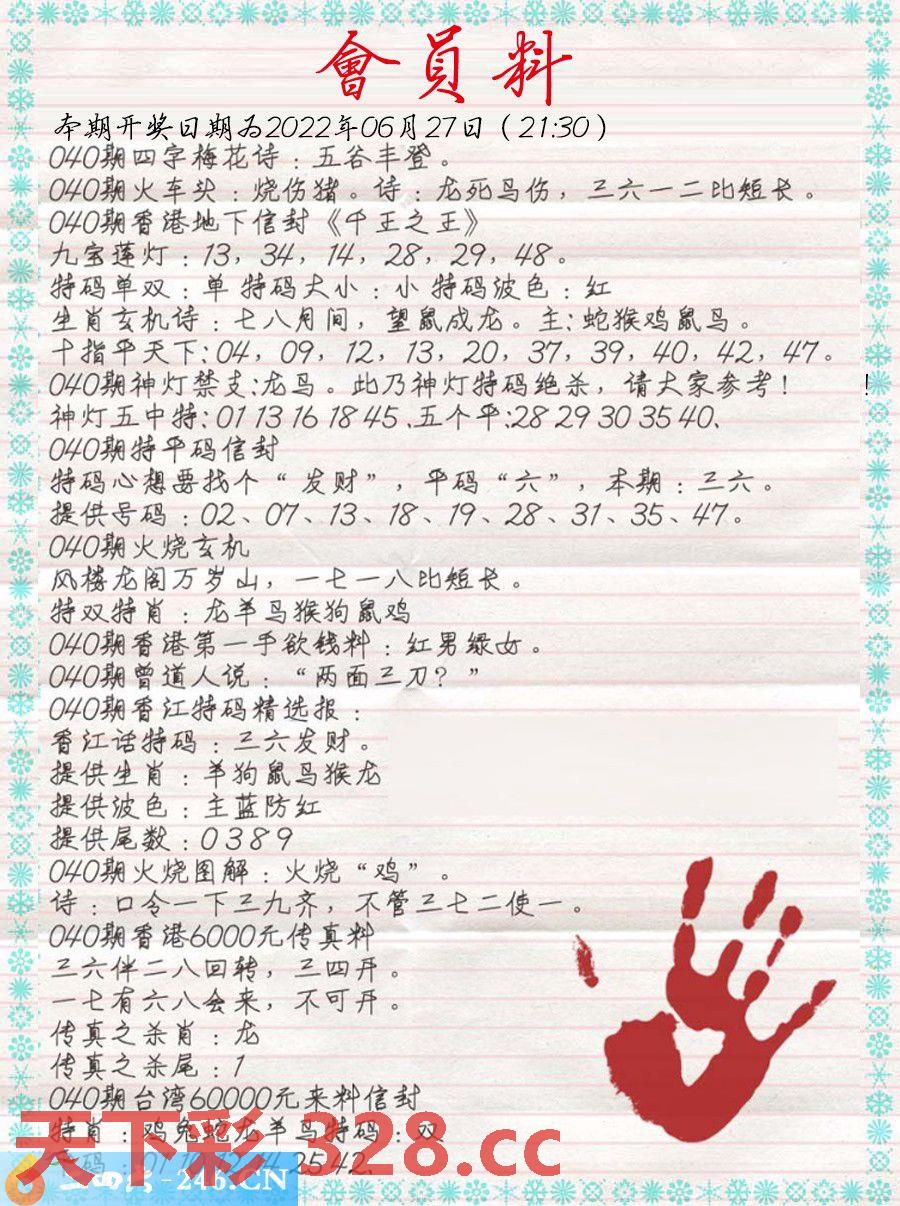 會員料
本期开奖日期为2022年06月27日（21:30）
040期四字梅花诗：五谷丰登。
040期火车头：烧伤猪。诗：龙死鸟伤，三六一二比短长。
040期香港地下信封《千王之王》
九宝莲灯：13，34，14，28，29，48。
特码单双：单 特码大小：小 特码波色：红
生肖玄机诗：七八月间，望鼠成龙。主:蛇猴鸡鼠鸟。
十指平天下:04，09，12，13，20，37，39，40，42，47。
040期神灯禁支:龙鸟。此乃神灯特码绝杀，请大家参考！ !
神灯五中特:01 13 16 18 45 、五个平:28 29 30 35 40、
040期特平码信封
特码心想要找个“发财”，平码“六”，本期：三六。
提供号码：02、07、13、18、19、28、31、35、47。
040期火烧玄机
风楼龙阁万岁山，一七一八比短长。
特双特肖：龙羊鸟猴狗鼠鸡
040期香港第一手欲钱料：红男绿女。
040期曾道人说：“两面三刀？”
040期香江特码精选报：
香江话特码：三六发财。
提供生肖：羊狗鼠鸟猴龙
提供波色：主蓝防红
提供尾数：0 3 8 9
040期火烧图解：火烧“鸡”。
诗：口令一下三九齐，不管三七二使一。
040期香港6000元传真料
三六伴二八回转，三四开。
一七有六八会来，不可开。
传真之杀肖：龙
传真之杀尾：1
040期台湾60000元来料信封
特肖：鸡兔蛇龙羊鸟特码：双
25 42、
天下彩328.cc
-246.CN